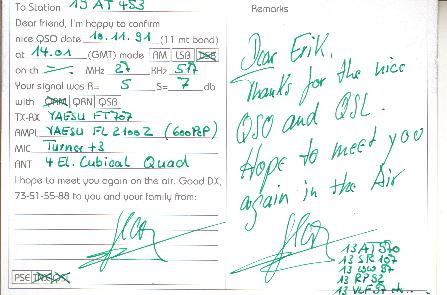 To Station 13 AT 453
Dear friend, I'm happy to confirm
nice QSO date 10.11.91 (11 mt band)
at 14.01 (GMT) made AM LSB USB
on ch — MHz 27 KHz 577
Your signal was R= 5 S= 7 db
with QRM QRN QSB
TX-RX YAESU FT707
AMPL YAESU FL2100Z (600PEP)
MIC Turner+3
ANT 4 El. Cubical Quad
I hope to meet you again on the air. Good DX,
73-51-55-88 to you and your family from:
PSE
Remarks
Dear Erik.
Thanks for the nice
QSO and QSL.
Hope to meet you
again in the Air
13 AT 570
13 SR 107
13 RP 52